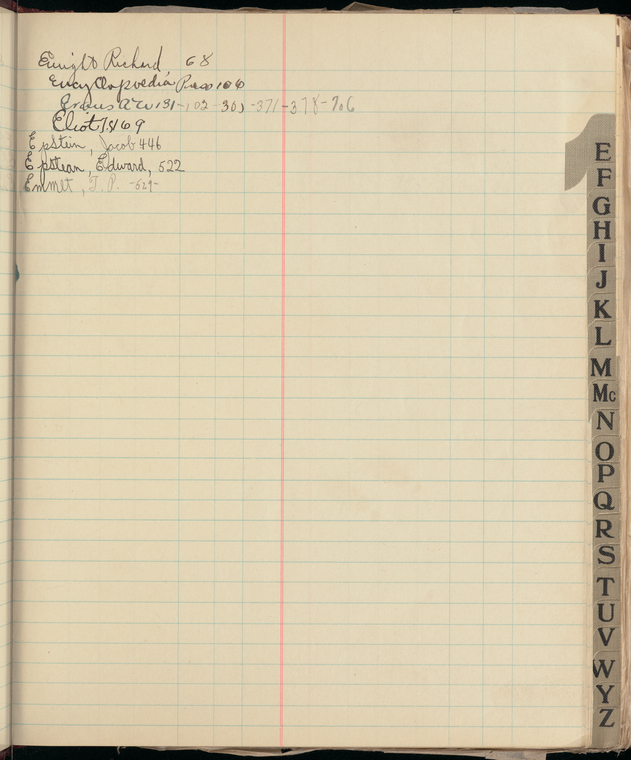 Enright Richard 68
Encyclopaedia Press 106
Evans A W 131-102-303-371-378-706
Eliot T. 469
Epstein, Jacob 446
Epstean, Edward, 522
Emmet, T. P. -529-
E
F
G
H
I
J
K
L
M
Mc
N
O
P
Q
R
S
T
U
V
W
Y
Z